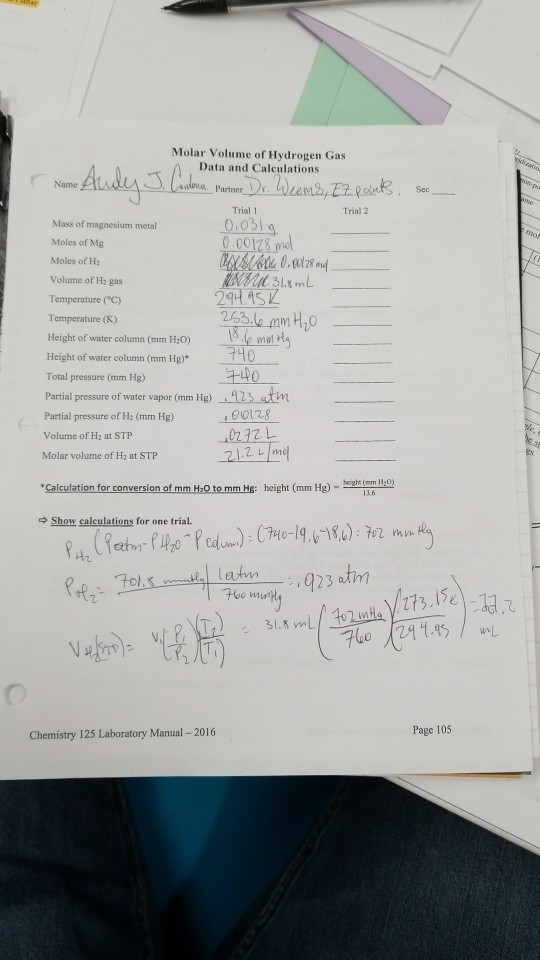 Molar Volume of Hydrogen Gas
Data and Calculations
Name Andy J. Cardona Partner Dr. Weems, EZ points. Sec
Trial 1 Trial 2
Mass of magnesium metal 0.031 g
Moles of Mg 0.00128 mol
Moles of H₂ 0.00128 mol
Volume of H₂ gas 31.8 mL
Temperature (°C) 294.95K
Temperature (K) 253.6 mm H₂O
Height of water column (mm H₂O) 18.6 mmHg
Height of water column (mm Hg)* 740
Total pressure (mm Hg) 740
Partial pressure of water vapor (mm Hg) .923 atm
Partial pressure of H₂ (mm Hg) .00128
Volume of H₂ at STP .0272 L
Molar volume of H₂ at STP 21.2 L/mol
*Calculation for conversion of mm H₂O to mm Hg: height (mm Hg) = height (mm H₂O) / 13.6
⇨ Show calculations for one trial.
P H₂ (Patm - P H₂O - P column) = (740-19.6-18.6) = 702 mmHg
P H₂ = 701.8 mmHg | 1 atm / 760 mmHg = .923 atm
V H₂(STP) = V₁ (P₁/P₂)(T₂/T₁) = 31.8 mL (702 mmHg/760)(273.15K/294.95) = 27.2 mL
Chemistry 125 Laboratory Manual – 2016 Page 105